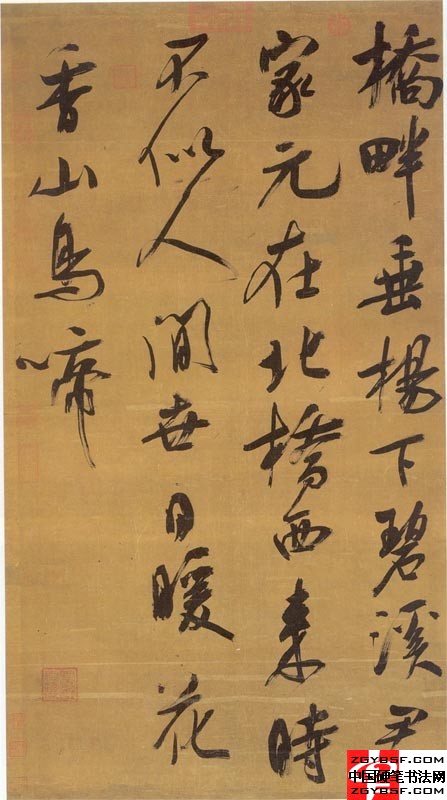 橋畔垂楊下碧溪君
家元在北橋西來時
不似人間世日暖花
香山鳥啼
ZGYBSF.COM
中国硬笔书法网
ZGYBSF.COM